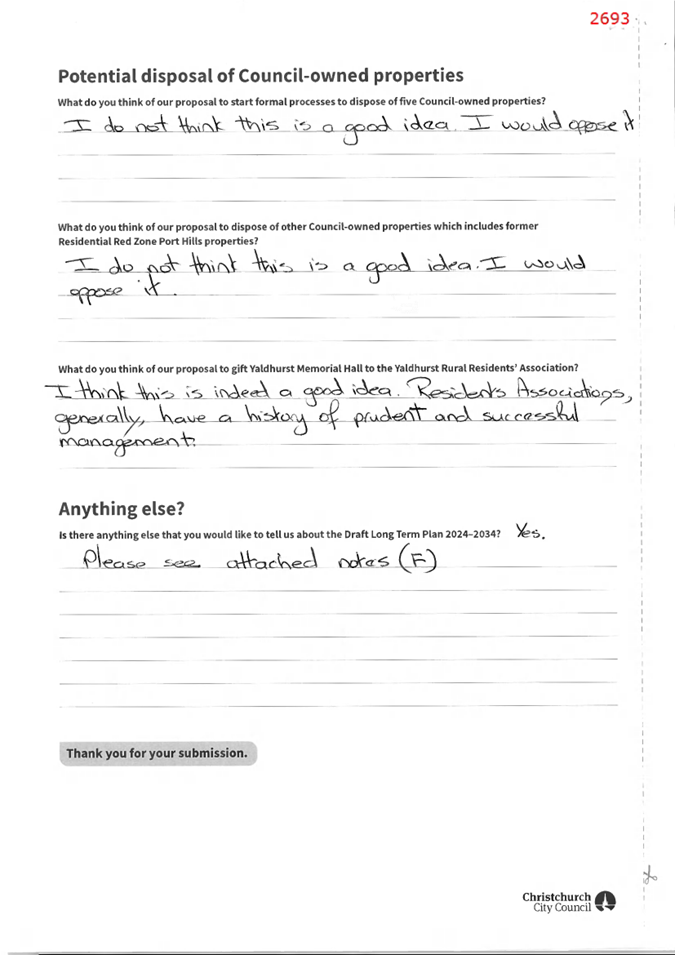 2693
Potential disposal of Council-owned properties
What do you think of our proposal to start formal processes to dispose of five Council-owned properties?
I do not think this is a good idea. I would oppose it
What do you think of our proposal to dispose of other Council-owned properties which includes former
Residential Red Zone Port Hills properties?
I do not think this is a good idea. I would
oppose it.
What do you think of our proposal to gift Yaldhurst Memorial Hall to the Yaldhurst Rural Residents' Association?
I think this is indeed a good idea. Residents Associations,
generally, have a history of prudent and successful
management.
Anything else?
Is there anything else that you would like to tell us about the Draft Long Term Plan 2024–2034? Yes.
Please see attached notes (F)
Thank you for your submission.
Christchurch
City Council